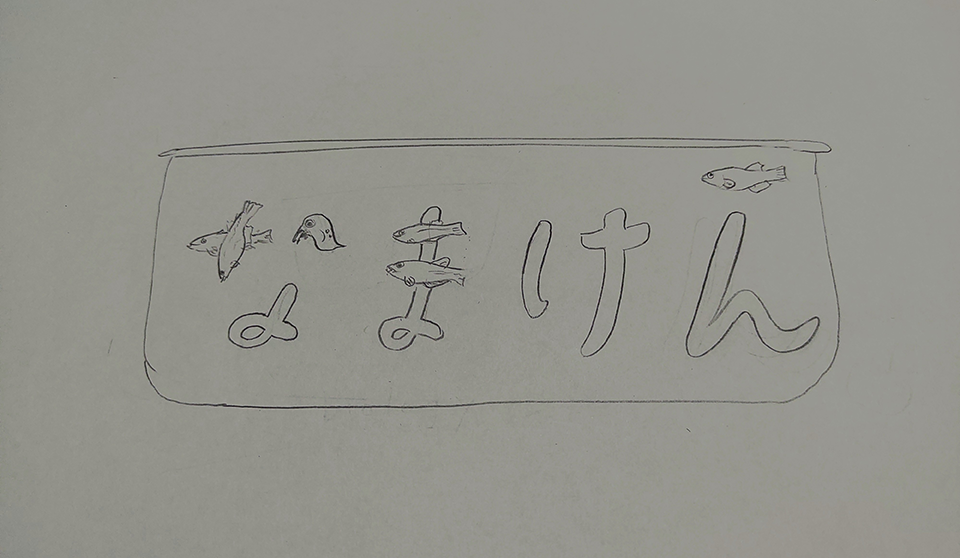 なまけん